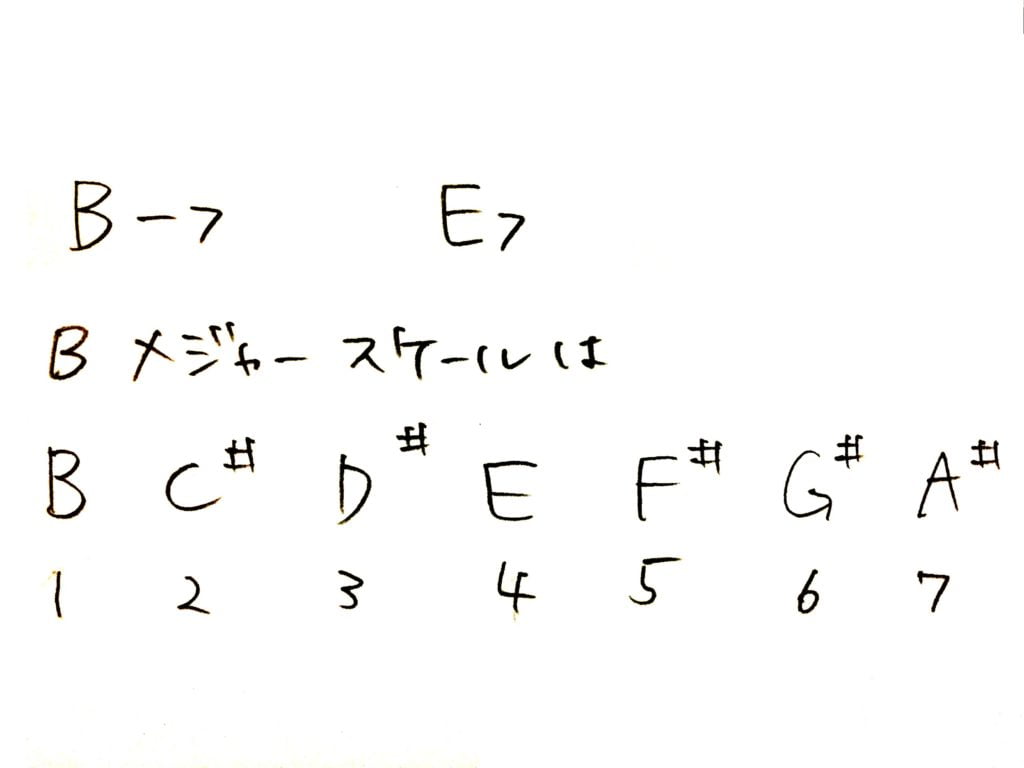 B-7 E7
B メジャースケールは
B C# D# E F# G# A#
1 2 3 4 5 6 7